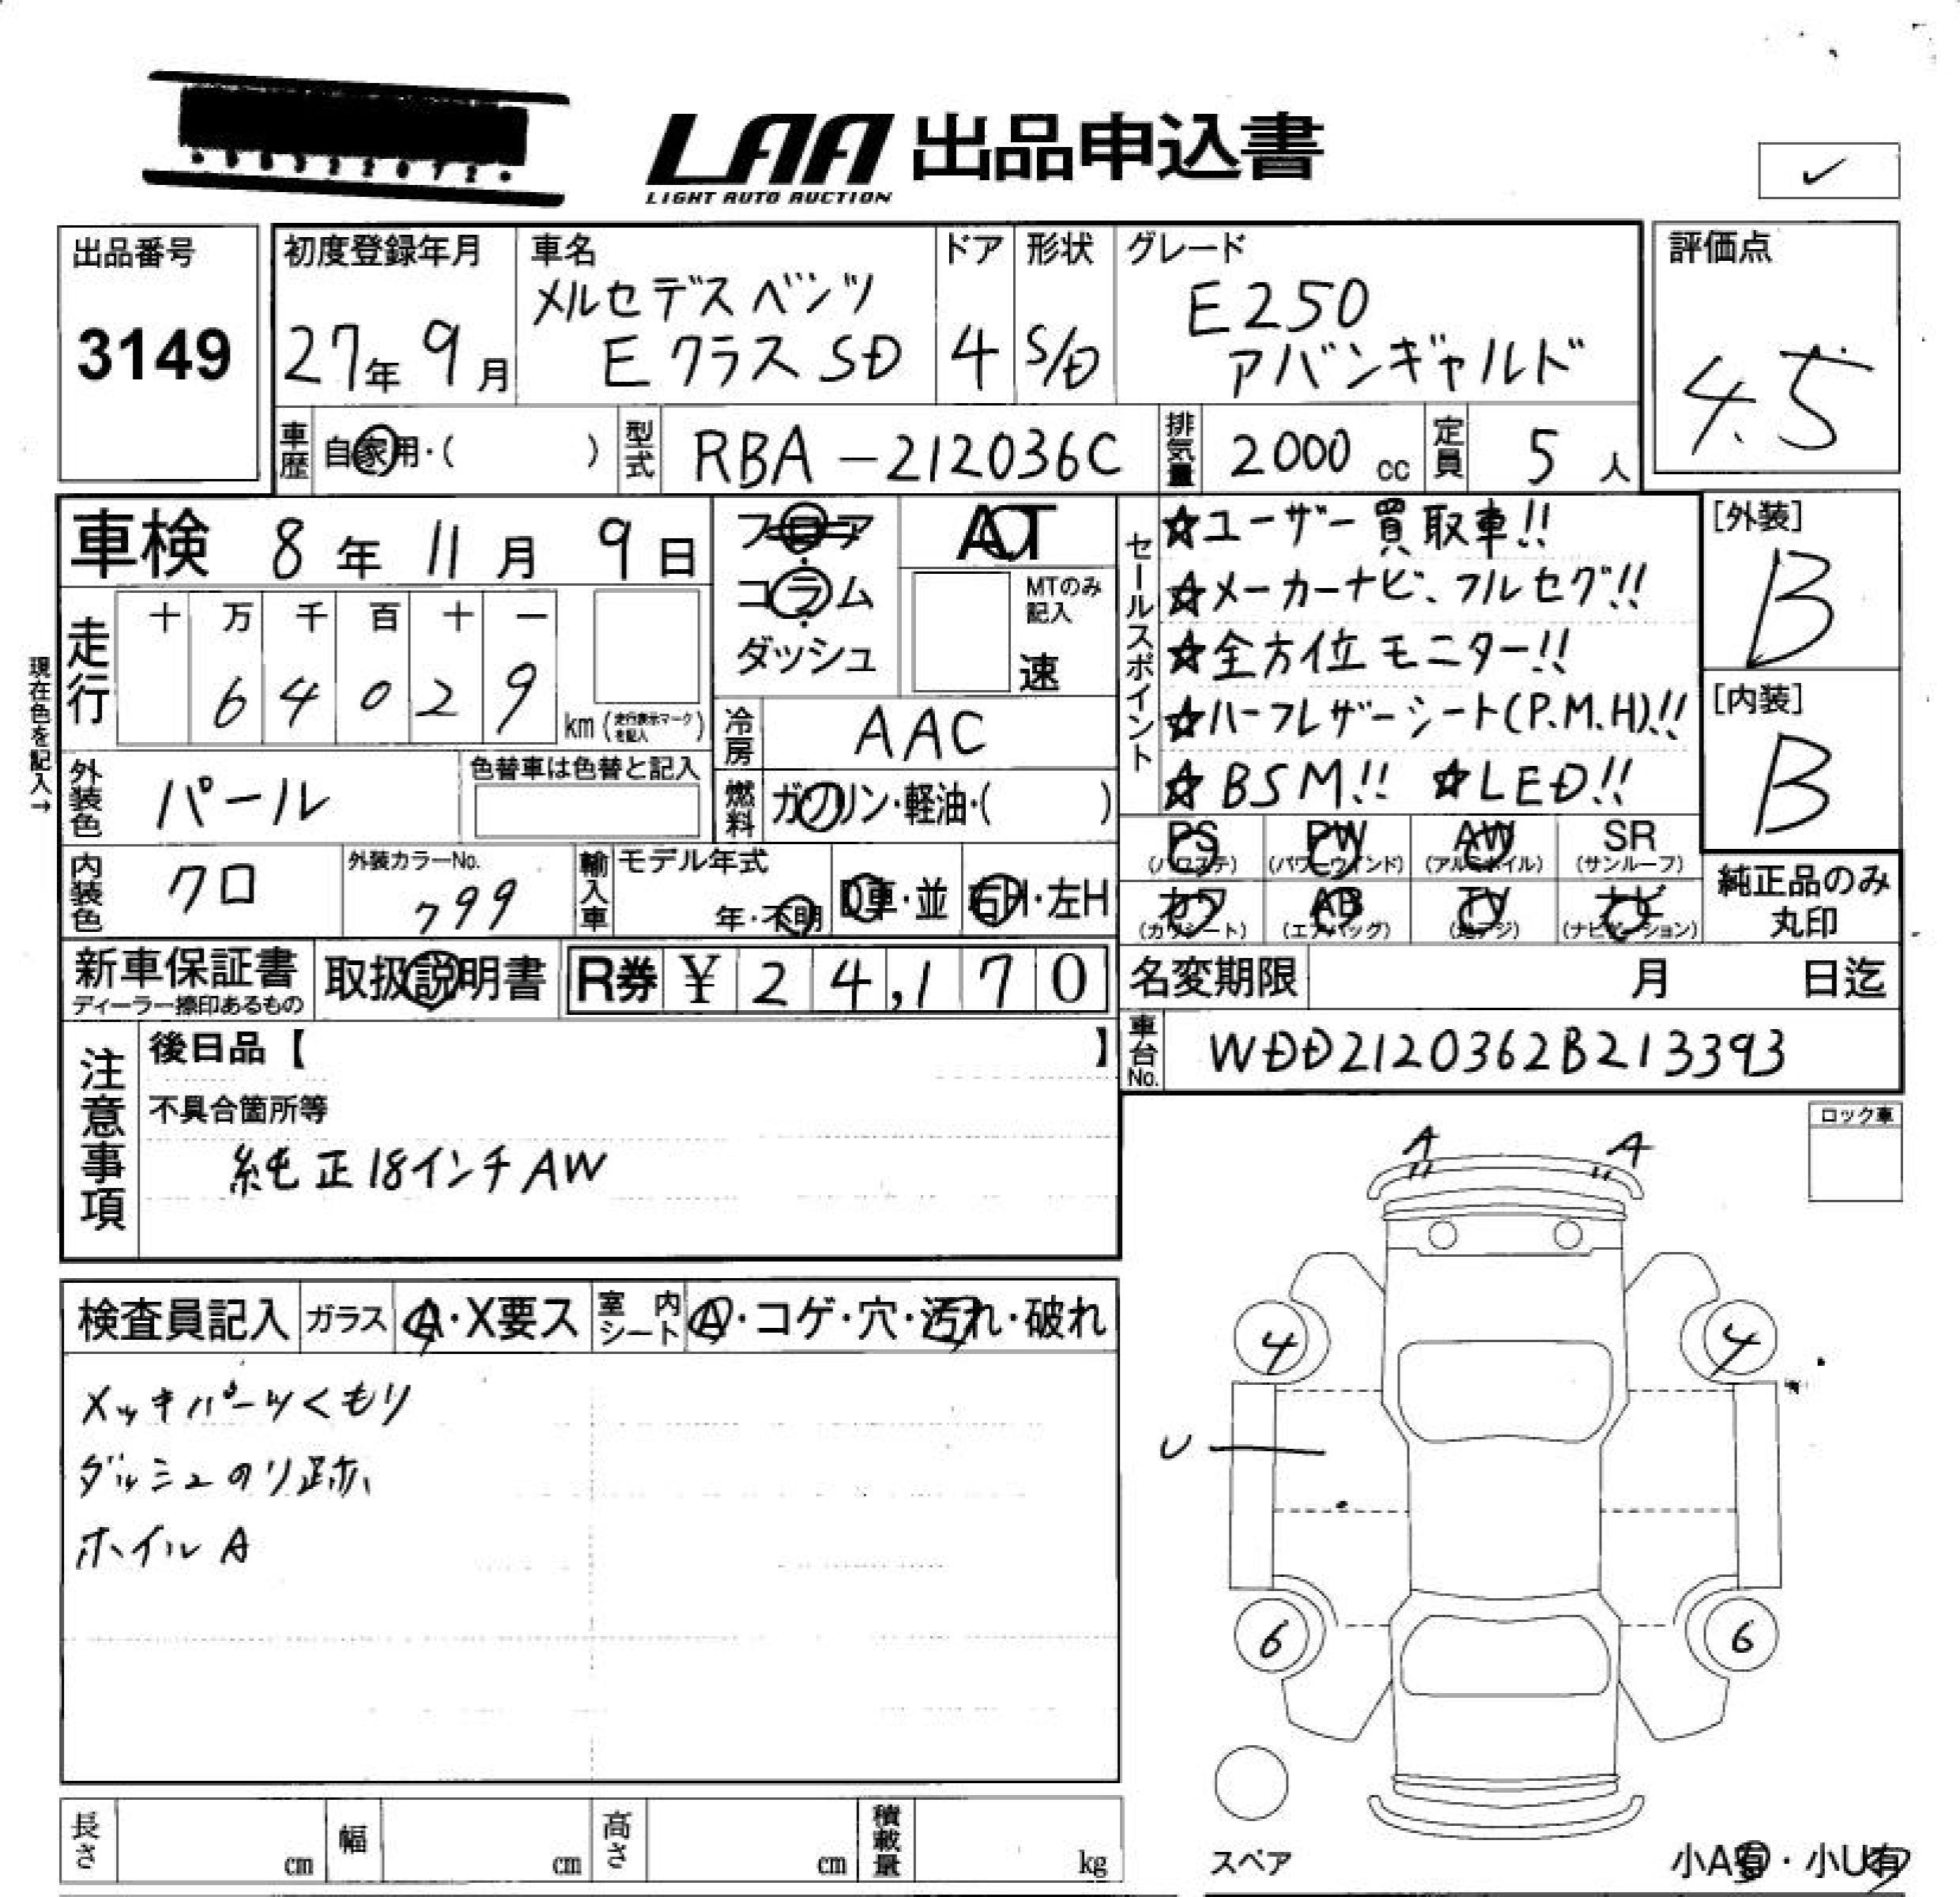 LAA 出品申込書
LIGHT AUTO AUCTION
出品番号
3149
初度登録年月
27年 9月
車名
メルセデスベンツ
Eクラス SD
ドア
4
形状
S/D
グレード
E250
アバンギャルド
評価点
4.5
車歴 自家用・( )
型式 RBA-212036C
排気量 2000 cc
定員 5 人
車検 8年 11月 9日
フロア
コラム
ダッシュ
AT
MTのみ
記入
速
セールスポイント
☆ユーザー買取車!!
☆メーカーナビ、フルセグ!!
☆全方位モニター!!
☆ハーフレザーシート(P.M.H)!!
☆BSM!! ☆LED!!
[外装]
B
[内装]
B
現在色を記入→
走行
十 万 千 百 十 一
6 4 0 2 9
km (走行表示マークを記入)
冷房 AAC
燃料 ガソリン・軽油・( )
外装色 パール
色替車は色替と記入
内装色 クロ
外装カラーNo.
799
輸入車 モデル年式
年・不明
D車・並 右H・左H
PS PW AW SR
(パワステ) (パワーウインド) (アルミホイル) (サンルーフ)
カワ AB TV ナビ
(カワシート) (エアバッグ) (地デジ) (ナビゲーション)
純正品のみ
丸印
新車保証書
ディーラー捺印あるもの
取扱説明書
R券 ¥ 24,170
名変期限 月 日迄
車台No. WDD2120362B213393
注意事項
後日品【 】
不具合箇所等
純正18インチAW
ロック車
A A
検査員記入 ガラス A・X要ス 室内シート A・コゲ・穴・汚れ・破れ
メッキパーツくもり
ダッシュのり跡
ホイルA
4 4
U
6 6
スペア
小A有・小U有
長さ cm 幅 cm 高さ cm 積載量 kg